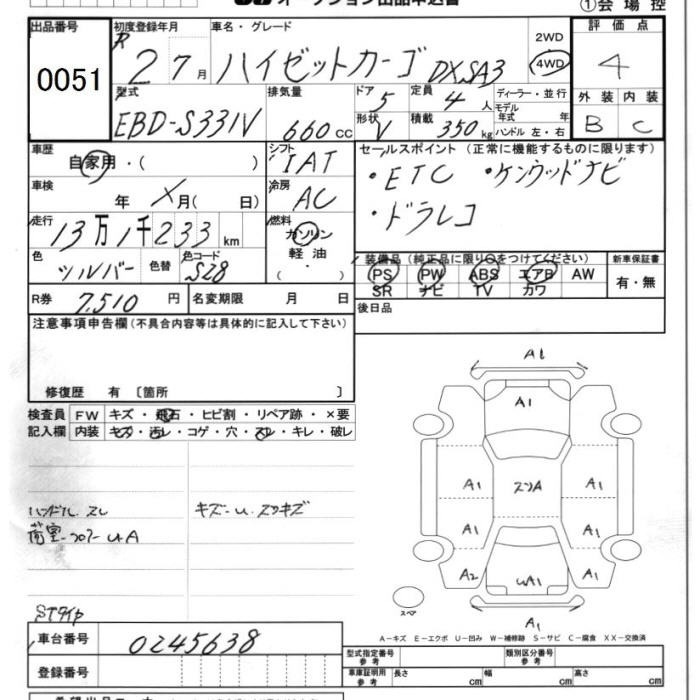 オークション出品申込書
①会場控
出品番号
0051
初度登録年月
R 2 7月
車名・グレード
ハイゼットカーゴ DX SA3
2WD
4WD
評価点
4
型式
EBD-S331V
排気量
660cc
ドア 5
定員 4人
ディーラー・並行
モデル年式 年
形状 V
積載 350kg
ハンドル 左・右
外装 内装
B C
車歴
自家用・( )
シフト
IAT
セールスポイント (正常に機能するものに限ります)
・ETC ・ケンウッドナビ
・ドラレコ
車検
年 月( 日)
冷房
AC
走行
13万1千233km
燃料
ガソリン
軽油
・
色
シルバー
色替
色コード
S28
装備品 (純正品に限り○をつけてください)
PS PW ABS エアB AW
SR ナビ TV カワ
新車保証書
有・無
R券 7,510円
名変期限 月 日
後日品
注意事項申告欄(不具合内容等は具体的に記入して下さい)
修復歴 有 〔箇所 〕
検査員記入欄
FW キズ・飛石・ヒビ割・リペア跡・×要
内装 キズ・汚レ・コゲ・穴・スレ・キレ・破レ
ハンドル スレ
キズ-U.スリキズ
荷室-フロアーUA
STタイヤ
A1
A1
A1 スリA A1
A1 A1
A2 UA1 A1
スペア
A1
A-キズ E-エクボ U-凹み W-補修跡 S-サビ C-腐食 XX-交換済
車台番号
0245638
登録番号
型式指定番号 参考
類別区分番号 参考
車庫証明用 参考
長さ cm 幅 cm 高さ cm